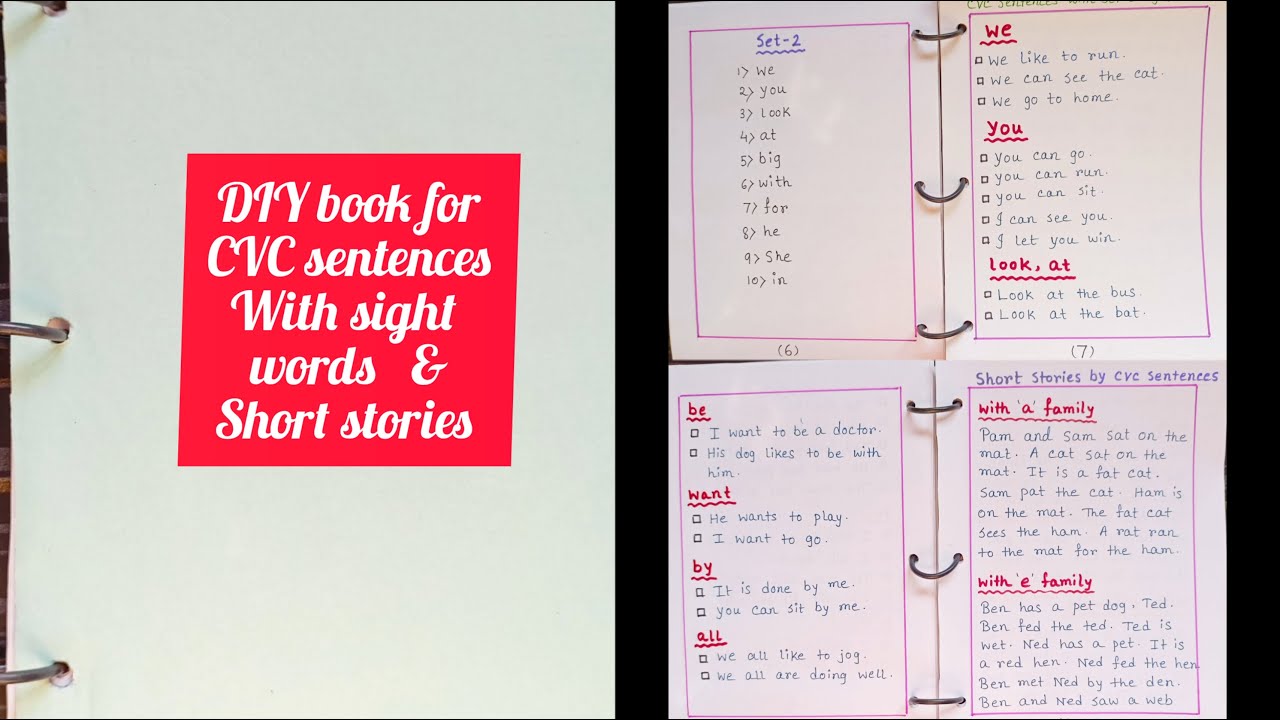 DIY book for
CVC sentences
With sight
words &
Short stories
Set-2
1) We
2) you
3) look
4) at
5) big
6) with
7) for
8) he
9) She
10) in
(6)
we
We like to run.
We can see the cat.
We go to home.
You
You can go.
you can run.
you can sit.
I can see you.
I let you win.
look, at
Look at the bus.
Look at the bat.
(7)
be
I want to be a doctor.
His dog likes to be with
him.
want
He wants to play.
I want to go.
by
It is done by me.
you can sit by me.
all
We all like to jog.
We all are doing well.
Short Stories by CVC Sentences
with 'a' family
Pam and Sam sat on the
mat. A cat sat on the
mat. It is a fat cat.
Sam pat the cat. Ham is
on the mat. The fat cat
sees the ham. A rat ran
to the mat for the ham.
with 'e' family
Ben has a pet dog, Ted.
Ben fed the ted. Ted is
wet. Ned has a pet. It is
a red hen. Ned fed the hen
Ben met Ned by the den.
Ben and Ned saw a web